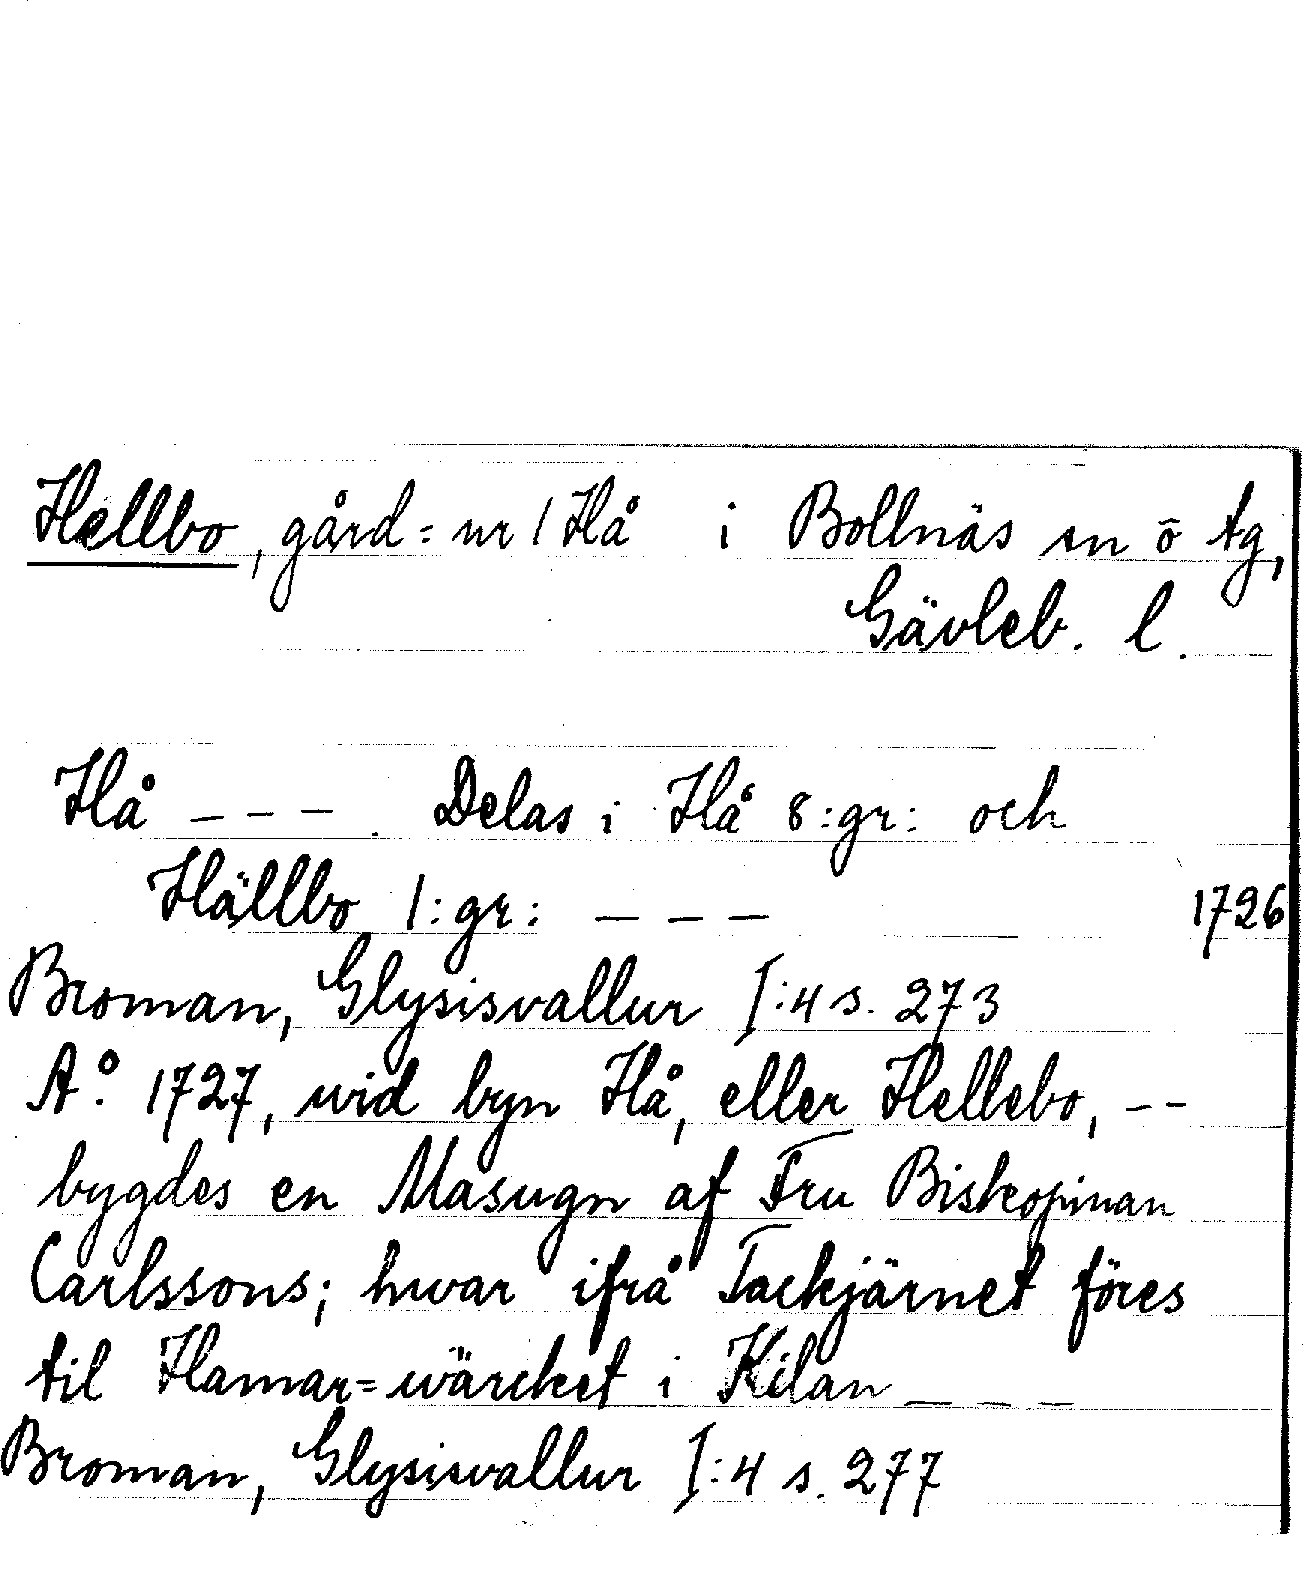 Hellbo, gård = nr 1 Hå i Bollnäs sn ö tg,
Gävleb. l.
Hå – – – . Delas i Hå 8:gr: och
Hällbo 1:gr: – – – 1726
Broman, Glysisvallur I:4 s. 273
A:o 1727, wid byn Hå, eller Hellebo, – –
bygdes en Masugn af Fru Biskopinan
Carlssons; hwar ifrå Tackjärnet föres
til Hamar=wärcket i Kilan – – –
Broman, Glysisvallur I:4 s. 277